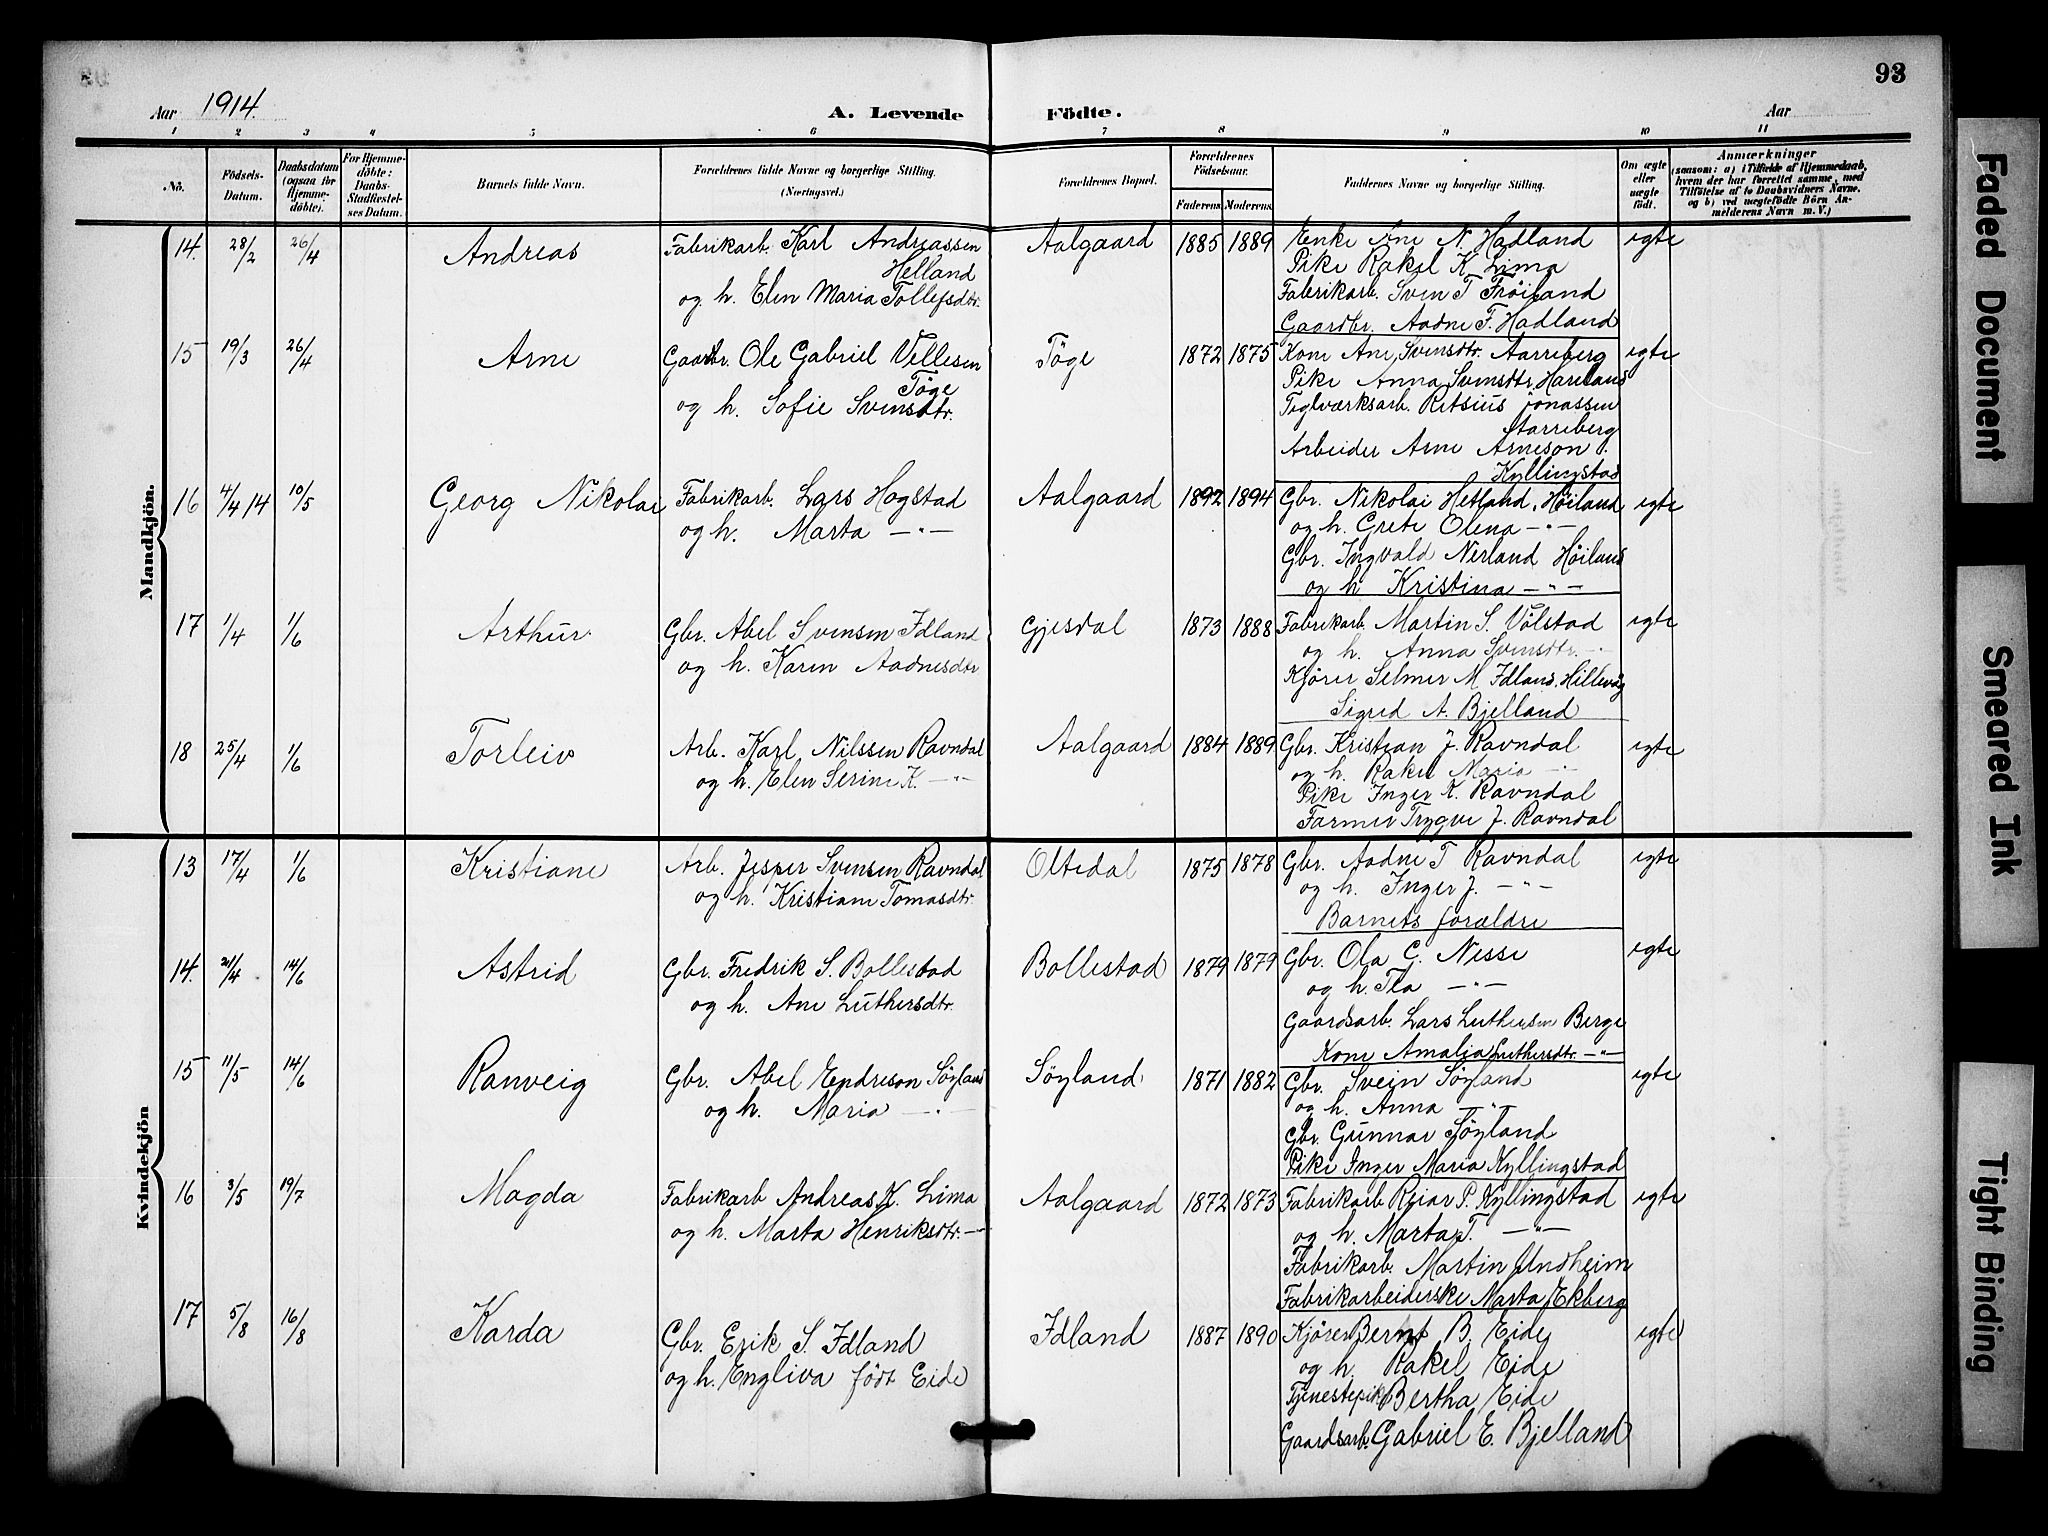 93
Aar 1914.
A. Levende Födte.
Aar
1 2 3 4 5 6 7 8 9 10 11
No.
Födsels-Datum.
Daabsdatum (ogsaa for Hjemme-döbte).
For Hjemme-döbte: Daabs-Stadfæstel-ses Datum.
Barnets fulde Navn.
Forældrenes fulde Navne og borgerlige Stilling. (Næringsvei.)
Forældrenes Bopæl.
Forældrenes Födselsaar.
Faderens. Moderens.
Faddernes Navne og borgerlige Stilling.
Om ægte eller uægte födt.
Anmærkninger
(saasom: a) i Tilfælde af Hjemmedaab, hvem der har forrettet samme, med Tilföielse af to Daabsvidners Navne, og b) ved uægtefödte Börn Anmelderens Navn m. V.)
Mandkjön.
14. 28/2 26/4 Andreas Fabrikarb. Karl Andreassen Aalgaard 1885 1889 Enke Ane N. Hadland egte
Helland Pike Rakel K. Lima
og h. Elen Maria Tollefsdtr. Fabrikarb. Sven T. Fröiland
Gaardbr. Aadne F. Hadland
15 19/3 26/4 Arne Gaardbr. Ole Gabriel Vellesen Töge 1872 1875 Kone Ane Svensdtr. Aarreberg egte
Töge Pike Anna Svensdtr. Hareland
og h. Sofie Svensdtr. Teglværksarb. Ritsius Jonassen
Starreberg
Arbeider Arne Arneson
Kyllingstad
16 4/4 14 10/5 Georg Nikolai Fabrikarb. Lars Hogstad Aalgaard 1892 1894 Gbr. Nikolai Hetland, Höiland egte
og h. Marta -"- og h. Grete Olena -"-
Gbr. Ingvald Nerland Höiland
og h Kristina -"-
17 1/4 1/6 Arthur Gbr. Abel Svensen Idland Gjesdal 1873 1888 Fabrikarb. Martin S. Vølstad egte
og h. Karen Aadnesdtr. og h. Anna Svensdtr. -"-
Kjører Selmer M. Idland, Hillevåg
Sigred A. Bjelland
18 25/4 1/6 Torleiv Arb. Karl Nilssen Ravndal Aalgaard 1884 1889 Gbr. Kristian J. Ravndal egte
og h. Elen Serine K. -"- og h. Rakel Maria -"-
Pike Inger K. Ravndal
Farmer Trygve J. Ravndal
Kvindekjön
13 17/4 1/6 Kristiane Arb. Jesper Svensen Ravndal Oltedal 1875 1878 Gbr. Aadne T. Ravndal egte
og h. Kristiane Tomasdtr. og h. Inger J. -"-
Barnets forældre
14. 21/4 14/6 Astrid Gbr. Fredrik S. Bollestad Bollestad 1879 1879 Gbr. Ola G. Nesse egte
og h. Ane Luthersdtr. og h. Tla -"-
Gaardsarb. Lars Luthersen Berge
Kone Amalia Luthersdtr. -"-
15 11/5 14/6 Ranveig Gbr. Abel Endreson Söyland Söyland 1871 1882 Gbr. Svein Söyland egte
og h. Maria -"- og h. Anna -"-
Gbr. Gunnar Söyland
Pike Inger Maria Kyllingstad
16 3/5 19/7 Magda Fabrikarb Andreas K. Lima Aalgaard 1872 1873 Fabrikarb Reiar P. Kyllingstad egte
og h. Marta Henriksdtr. -"- og h. Marta T. -"-
Fabrikarb. Martin Undheim
Fabrikarbeiderske Marta Ekberg
17 5/8 16/8 Karda Gbr. Erik S. Idland Idland 1887 1890 Kjører Bernt B. Eide egte
og h. Engliva født Eide og h. Rakel Eide
Tjenestepik Bertha Eide
Gaardsarb. Gabriel E. Bjelland
Faded Document
Smeared Ink
Tight Binding